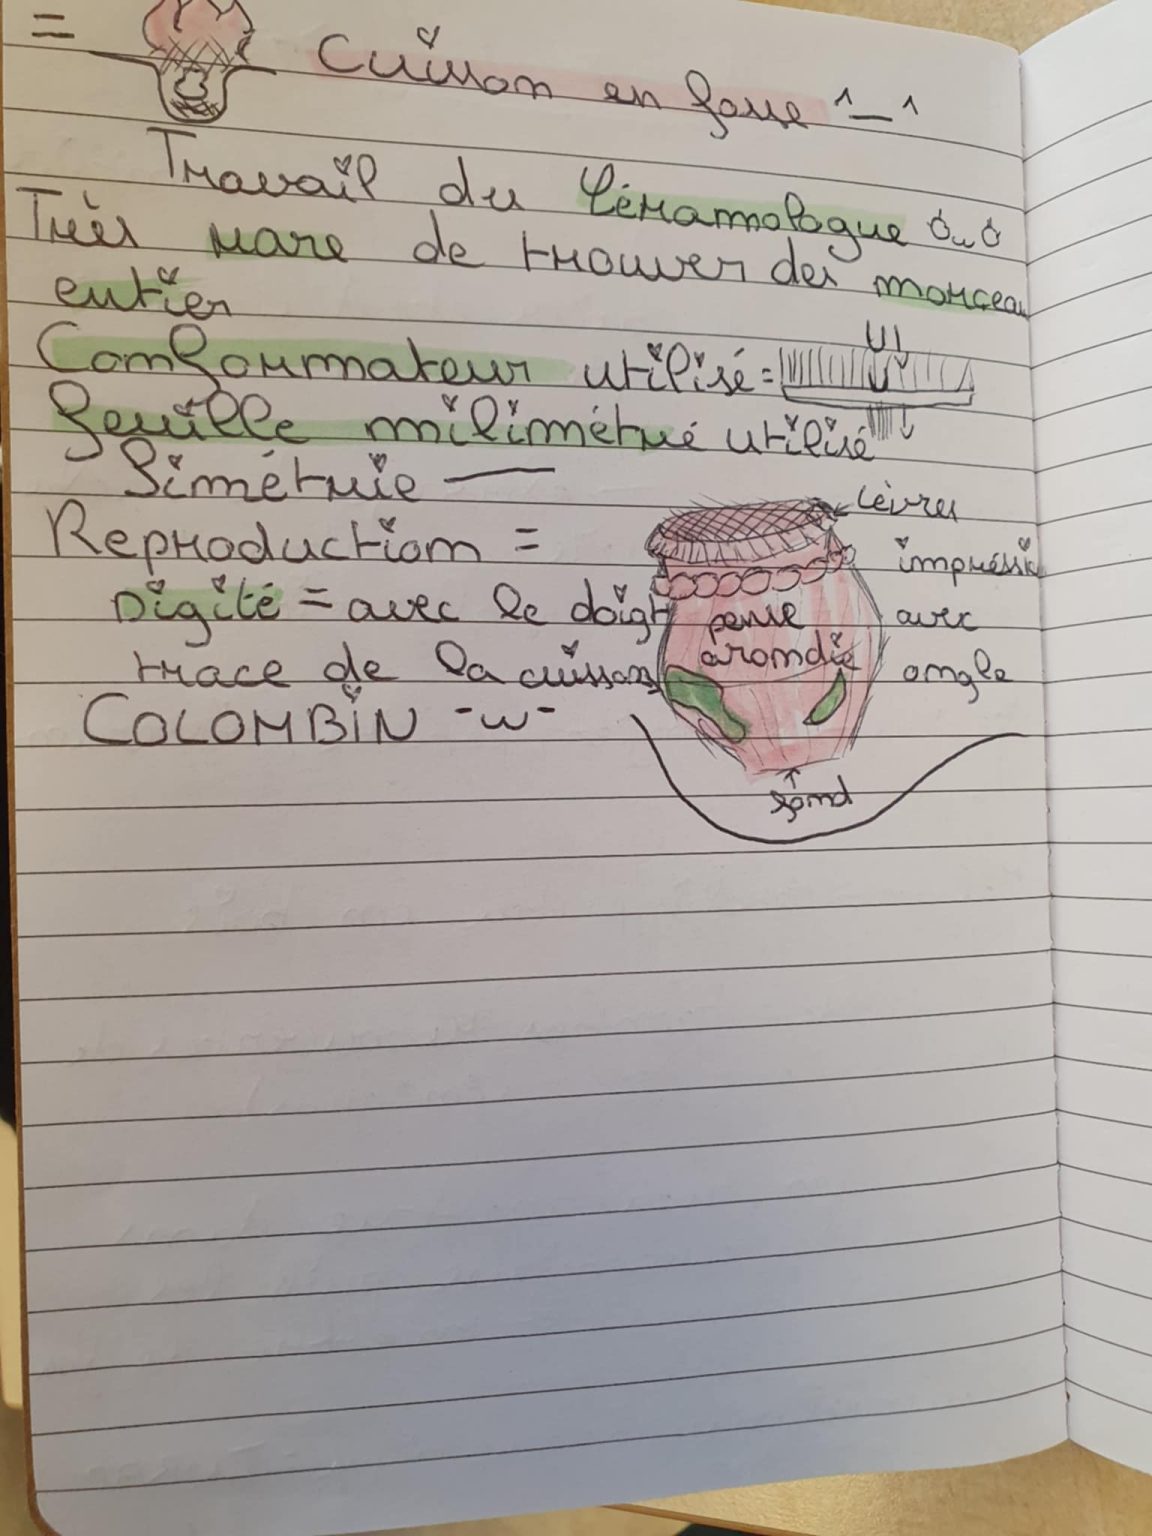 = Cuisson en fosse ^_^
Travail du Céramologue Ó_Ó
Très rare de trouver des morceau
entier
Conformateur utilisé =
feuille milimétré utilisé
Simétrie —
Lèvres
Reproduction =
impréssi
Digité = avec le doigt
panse avec
arondie
trace de la cuisson
ongle
COLOMBIN -w-
fond